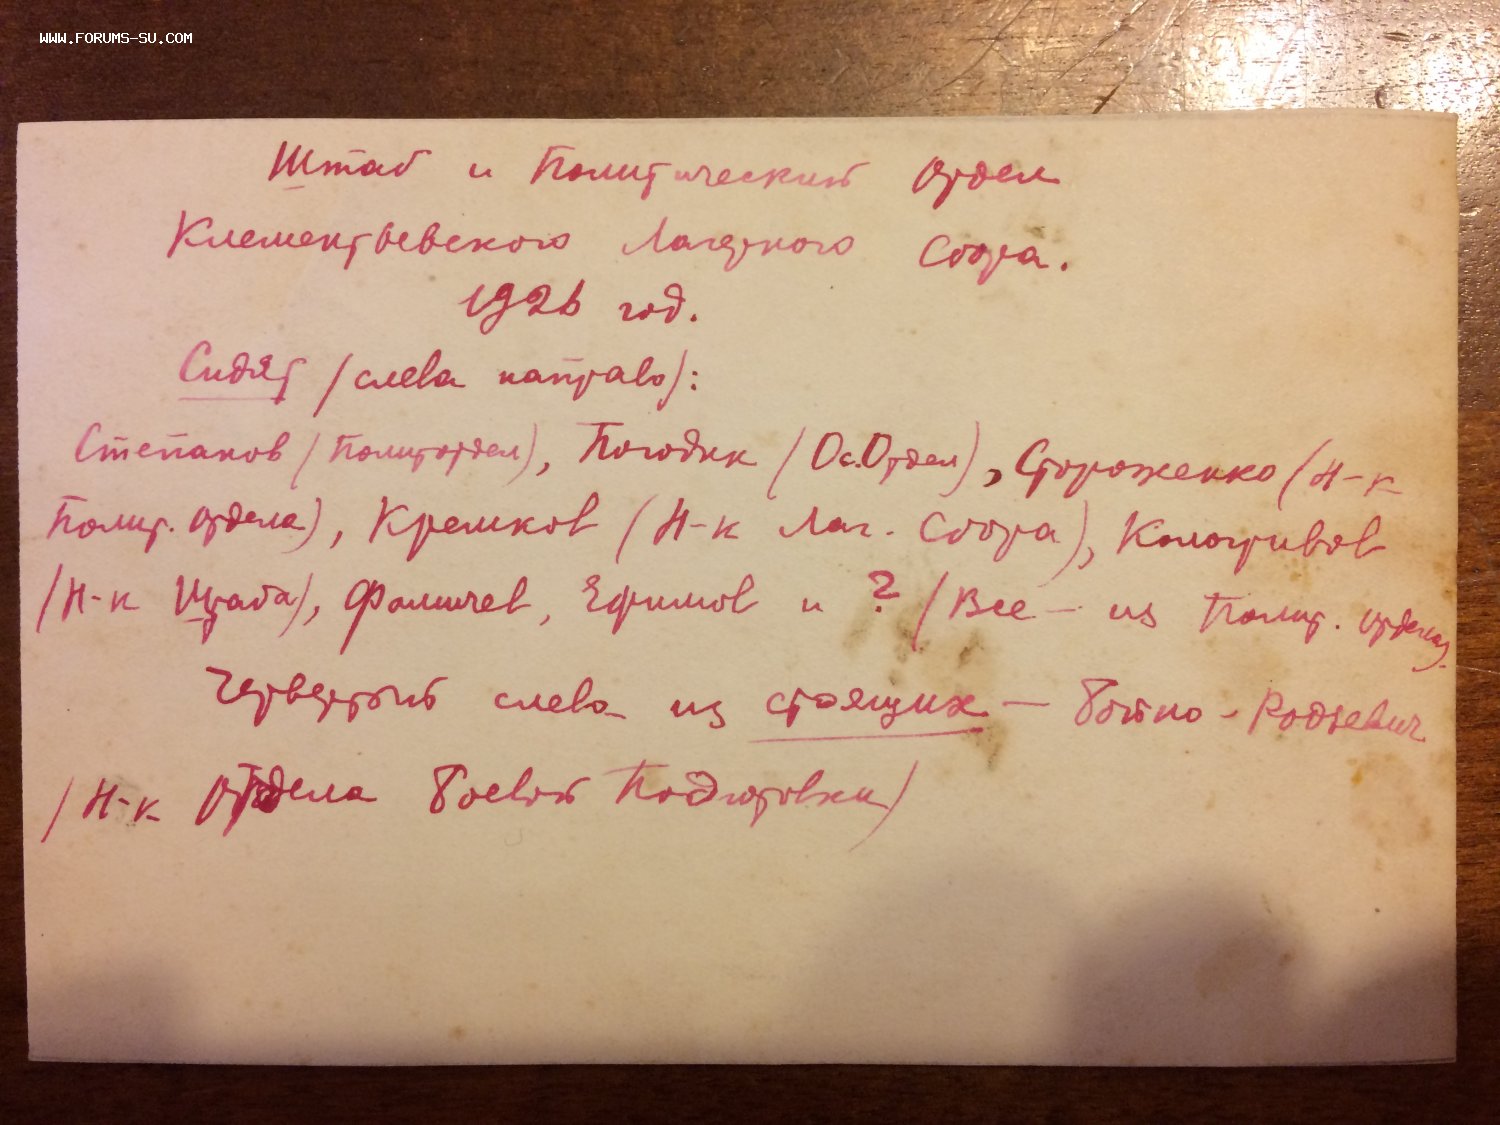 WWW.FORUMS-SU.COM
Штаб и Политический отдел
Клементьевского Лагерного Сбора.
1926 год.
Сидят (слева направо):
Степанов (Политотдел), Погодин (Ос.Отдел), Стороженко (Н-к
Полит. отдела), Кремков (Н-к Лаг. Сбора), Кологривов
(Н-к Штаба), Фомичев, Ефимов и ? (Все – из Полит. отдела).
Четвертый слева из стоящих – Бойно-Родзевич
(Н-к Отдела Боевой Подготовки)